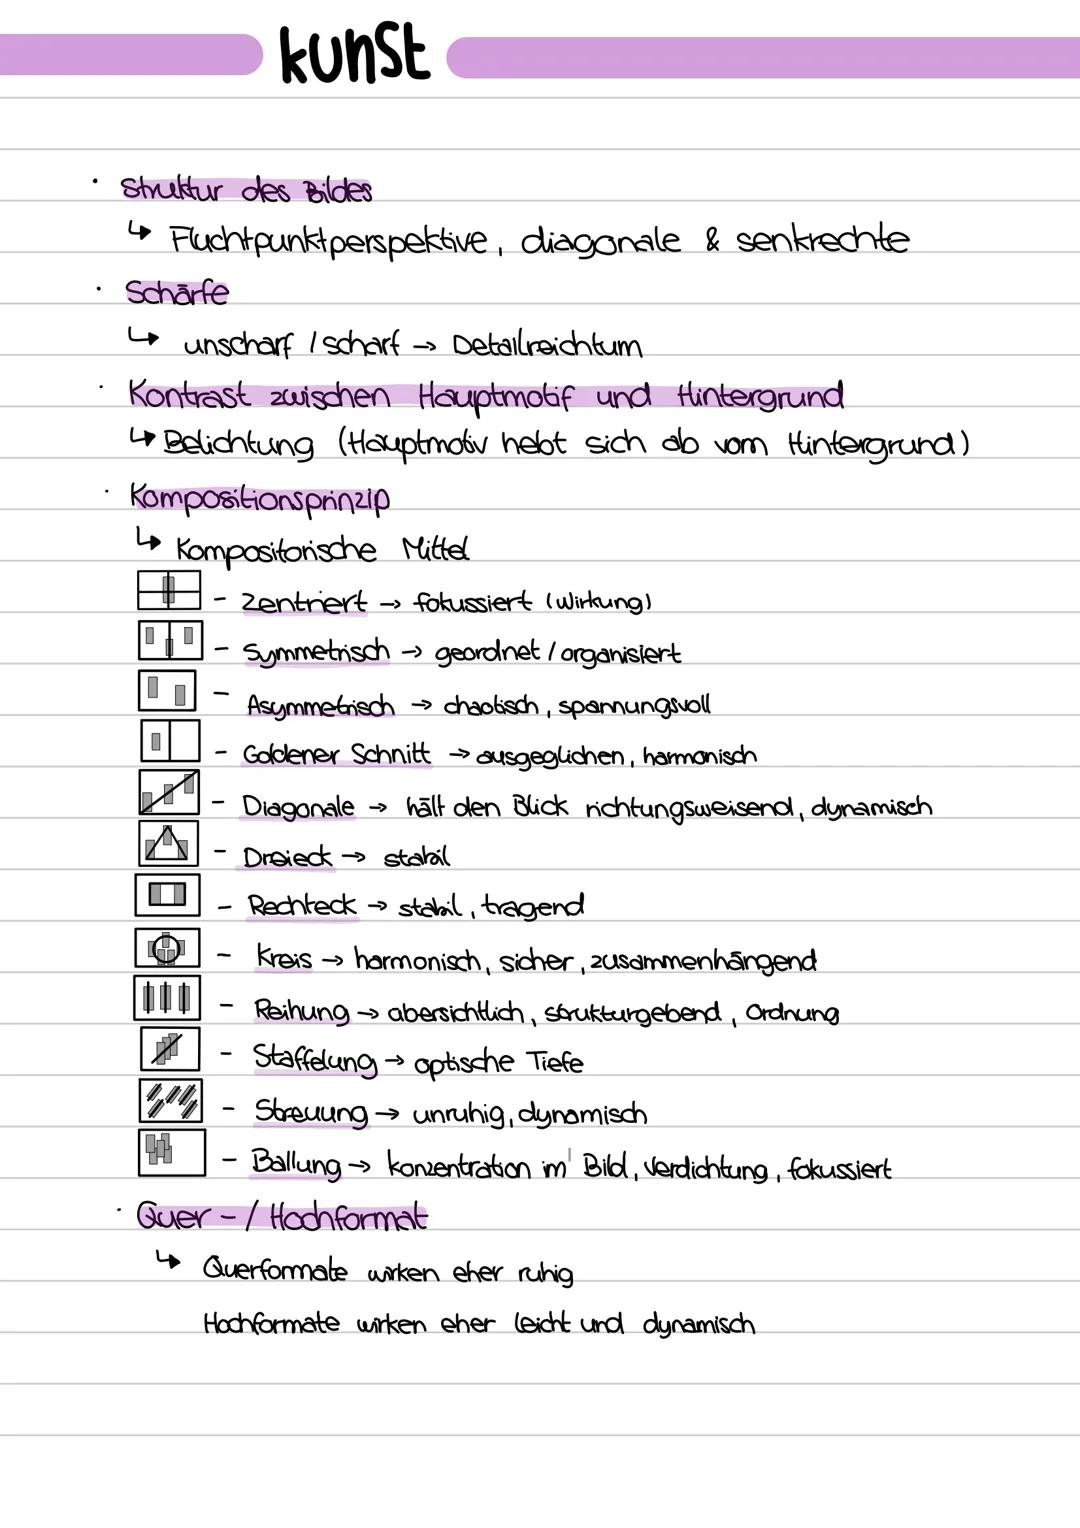 kunst
· Struktur des Bildes
↳ Fluchtpunktperspektive, diagonale & senkrechte
· Schärfe
↳ unscharf / scharf → Detailreichtum
· Kontrast zwischen Hauptmotif und Hintergrund
↳ Belichtung (Hauptmotiv hebt sich ab vom Hintergrund)
· Kompositionsprinzip
↳ Kompositorische Mittel
- Zentriert → fokussiert (Wirkung)
- Symmetrisch → geordnet / organisiert
- Asymmetrisch → chaotisch, spannungsvoll
- Goldener Schnitt → ausgeglichen, harmonisch
- Diagonale → hält den Blick richtungsweisend, dynamisch
- Dreieck → stabil
- Rechteck → stabil, tragend
- Kreis → harmonisch, sicher, zusammenhängend
- Reihung → abersichtlich, strukturgebend, Ordnung
- Staffelung → optische Tiefe
- Streuung → unruhig, dynamisch
- Ballung → konzentration im Bild, Verdichtung, fokussiert
· Quer - / Hochformat
↳ Querformate wirken eher ruhig
Hochformate wirken eher leicht und dynamisch